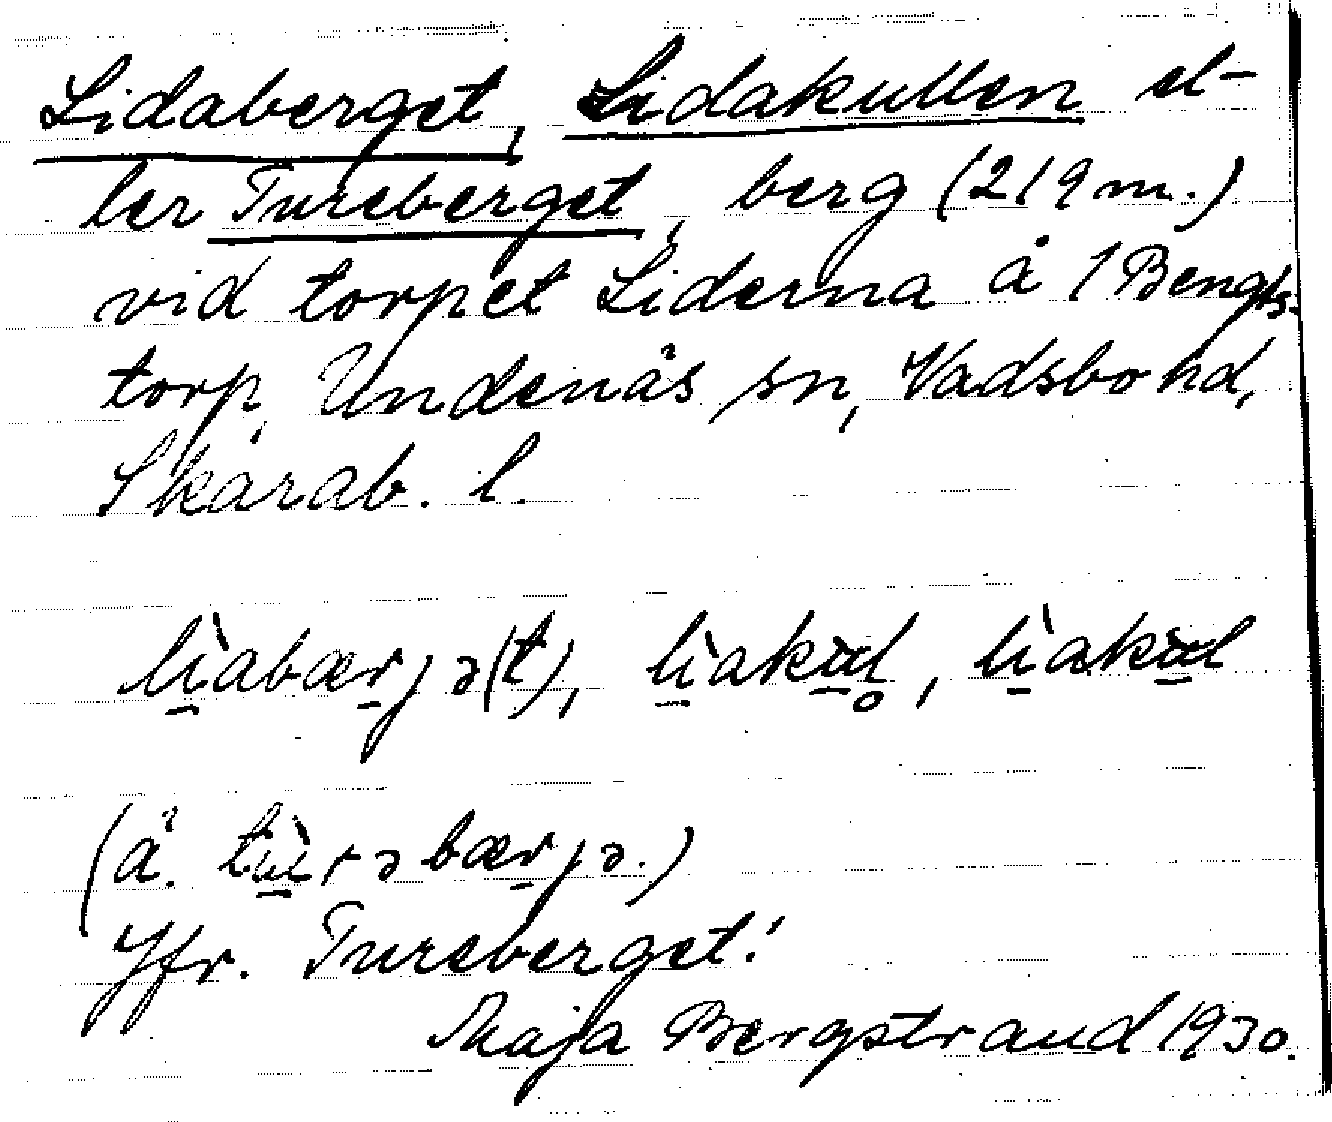 Lidaberget, Lidakullen el-
ler Tureberget, berg (219 m.)
vid torpet Liderna å 1 Bengts-
torp, Undenäs sn, Vadsbo hd,
Skarab. l.
lìabærjə(t), lìakul̥, lìakul
(å. tùrəbærjə.)
Jfr. Tureberget!
Maja Bergstrand 1930.